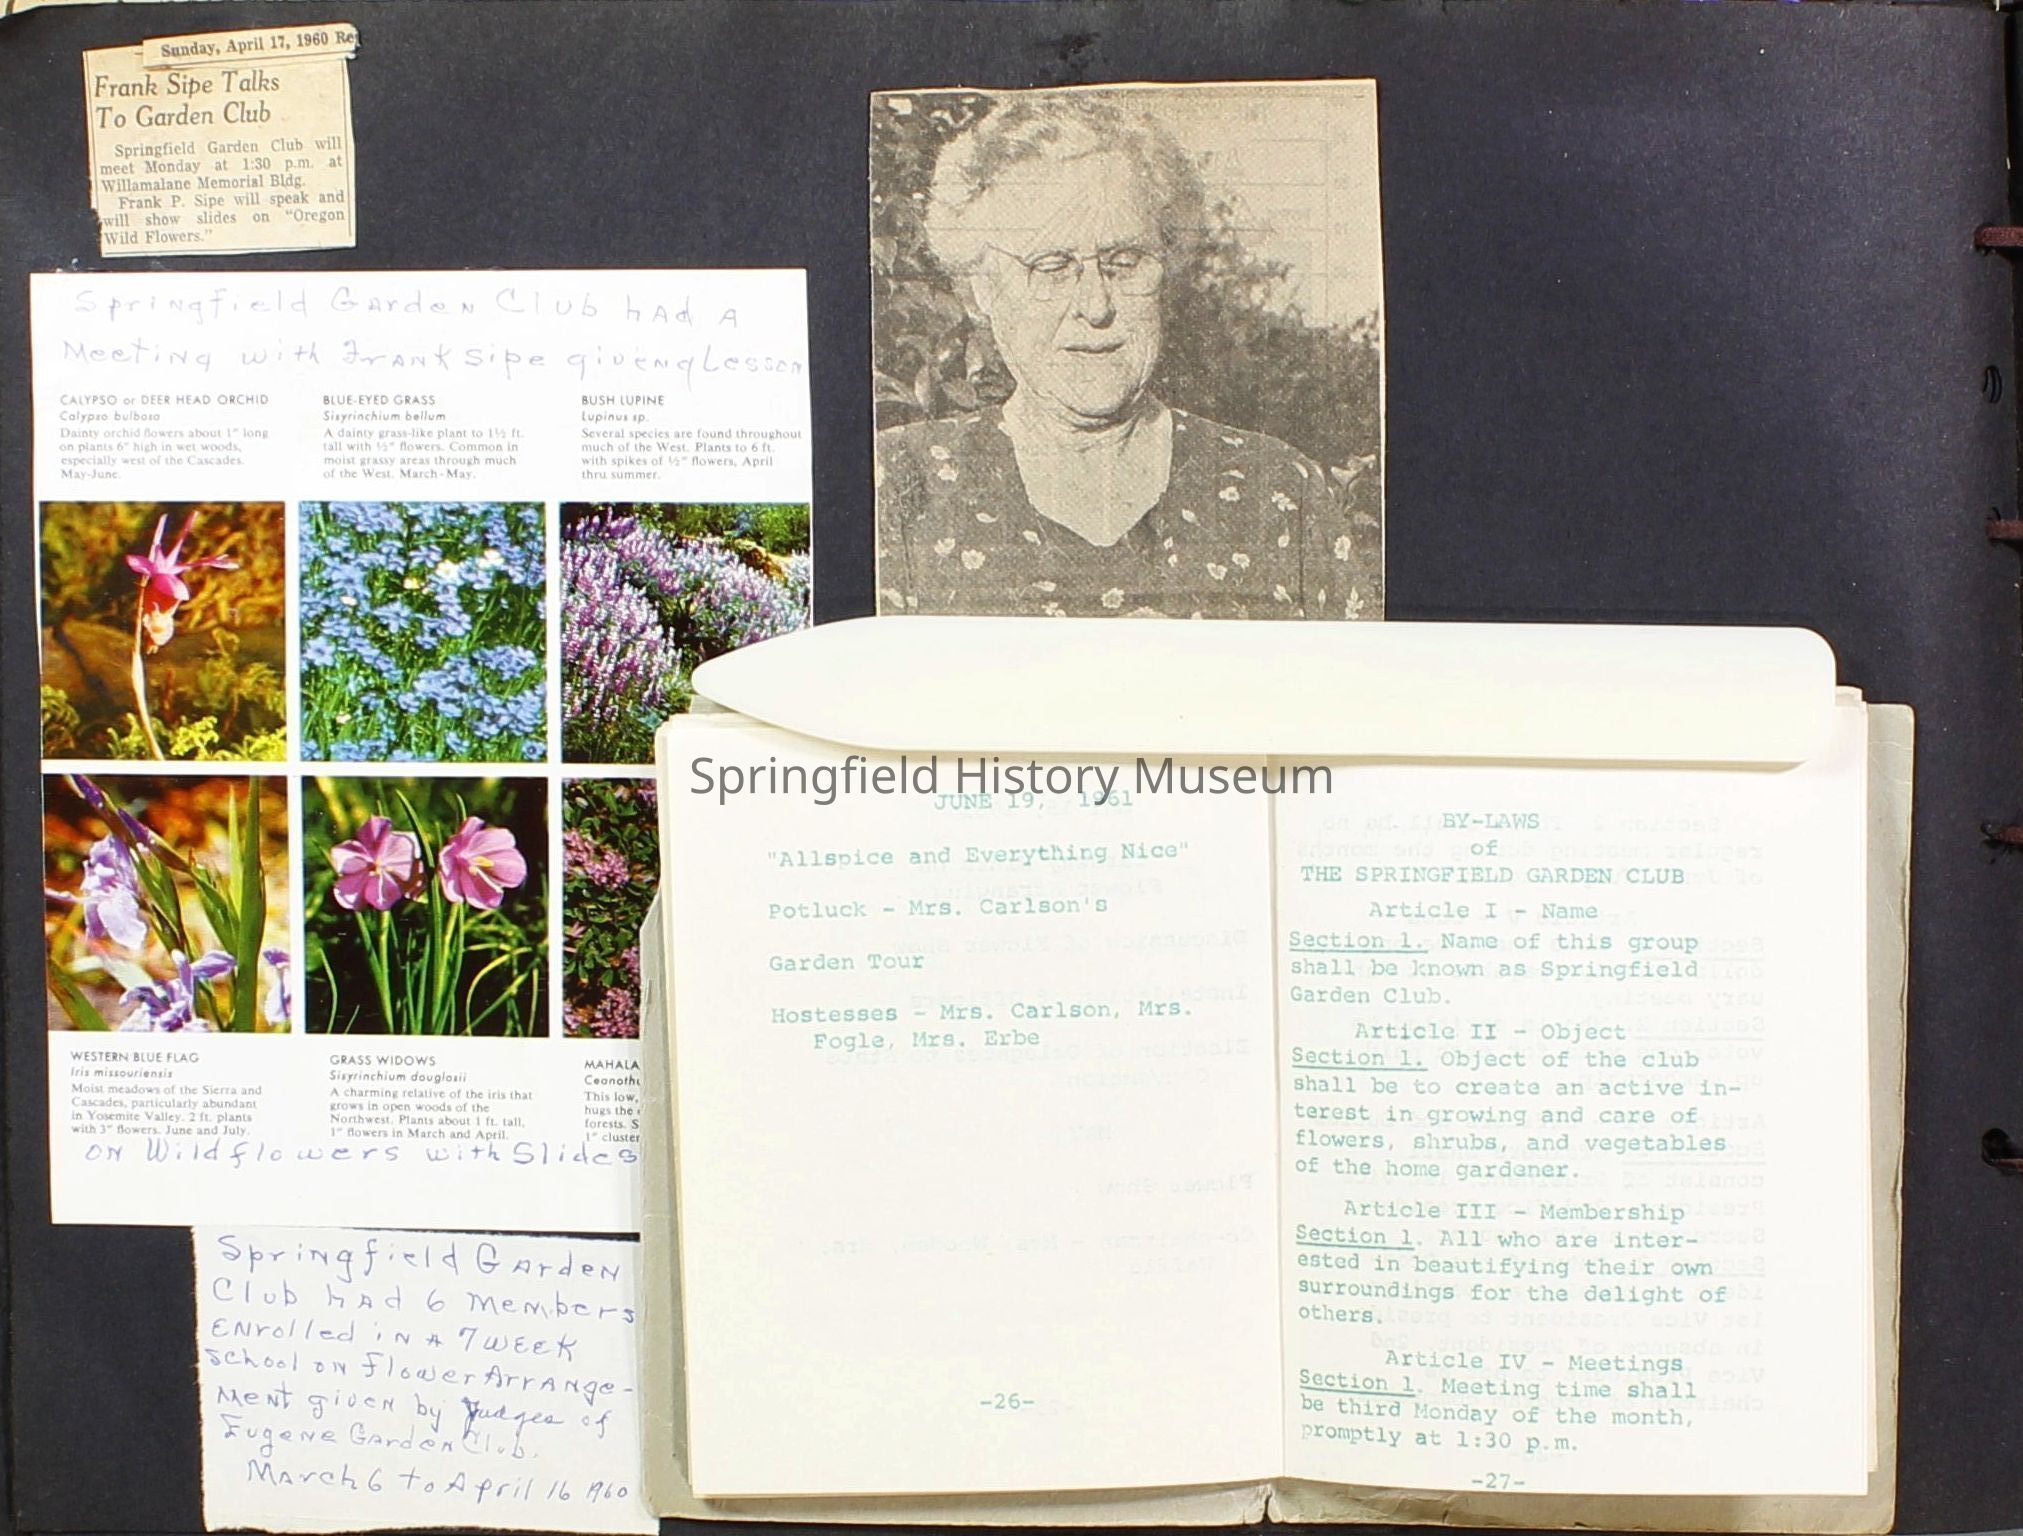 Sunday, April 17, 1960
Frank Sipe Talks
To Garden Club
Springfield Garden Club will
meet Monday at 1:30 p.m. at
Willamalane Memorial Bldg.
Frank P. Sipe will speak and
will show slides on "Oregon
Wild Flowers."
Springfield Garden Club had a
Meeting with Frank Sipe giveng Lesson
CALYPSO or DEER HEAD ORCHID
Calypso bulbosa
Dainty orchid flowers about 1" long
on plants 6" high in wet woods,
especially west of the Cascades.
May-June.
BLUE-EYED GRASS
Sisyrinchium bellum
A dainty grass-like plant to 1½ ft.
tall with ½" flowers. Common in
moist grassy areas through much
of the West. March-May.
BUSH LUPINE
Lupinus sp.
Several species are found throughout
much of the West. Plants to 6 ft.
with spikes of ½" flowers, April
thru summer.
WESTERN BLUE FLAG
Iris missouriensis
Moist meadows of the Sierra and
Cascades, particularly abundant
in Yosemite Valley. 2 ft. plants
with 3" flowers. June and July.
GRASS WIDOWS
Sisyrinchium douglasii
A charming relative of the iris that
grows in open woods of the
Northwest. Plants about 1 ft. tall,
1" flowers in March and April.
MAHALA
Ceanothu
This low,
hugs the
forests. S
1" cluster
on Wildflowers with Slides
Springfield Garden
Club had 6 members
Enrolled in a 7 week
School on Flower Arrange-
ment given by Judges of
Eugene Garden Club.
March 6 to April 16 1960
Springfield History Museum
JUNE 19, 1961
"Allspice and Everything Nice"
Potluck - Mrs. Carlson's
Garden Tour
Hostesses - Mrs. Carlson, Mrs.
Fogle, Mrs. Erbe
-26-
BY-LAWS
of
THE SPRINGFIELD GARDEN CLUB
Article I - Name
Section 1. Name of this group
shall be known as Springfield
Garden Club.
Article II - Object
Section 1. Object of the club
shall be to create an active in-
terest in growing and care of
flowers, shrubs, and vegetables
of the home gardener.
Article III - Membership
Section 1. All who are inter-
ested in beautifying their own
surroundings for the delight of
others.
Article IV - Meetings
Section 1. Meeting time shall
be third Monday of the month,
promptly at 1:30 p.m.
-27-